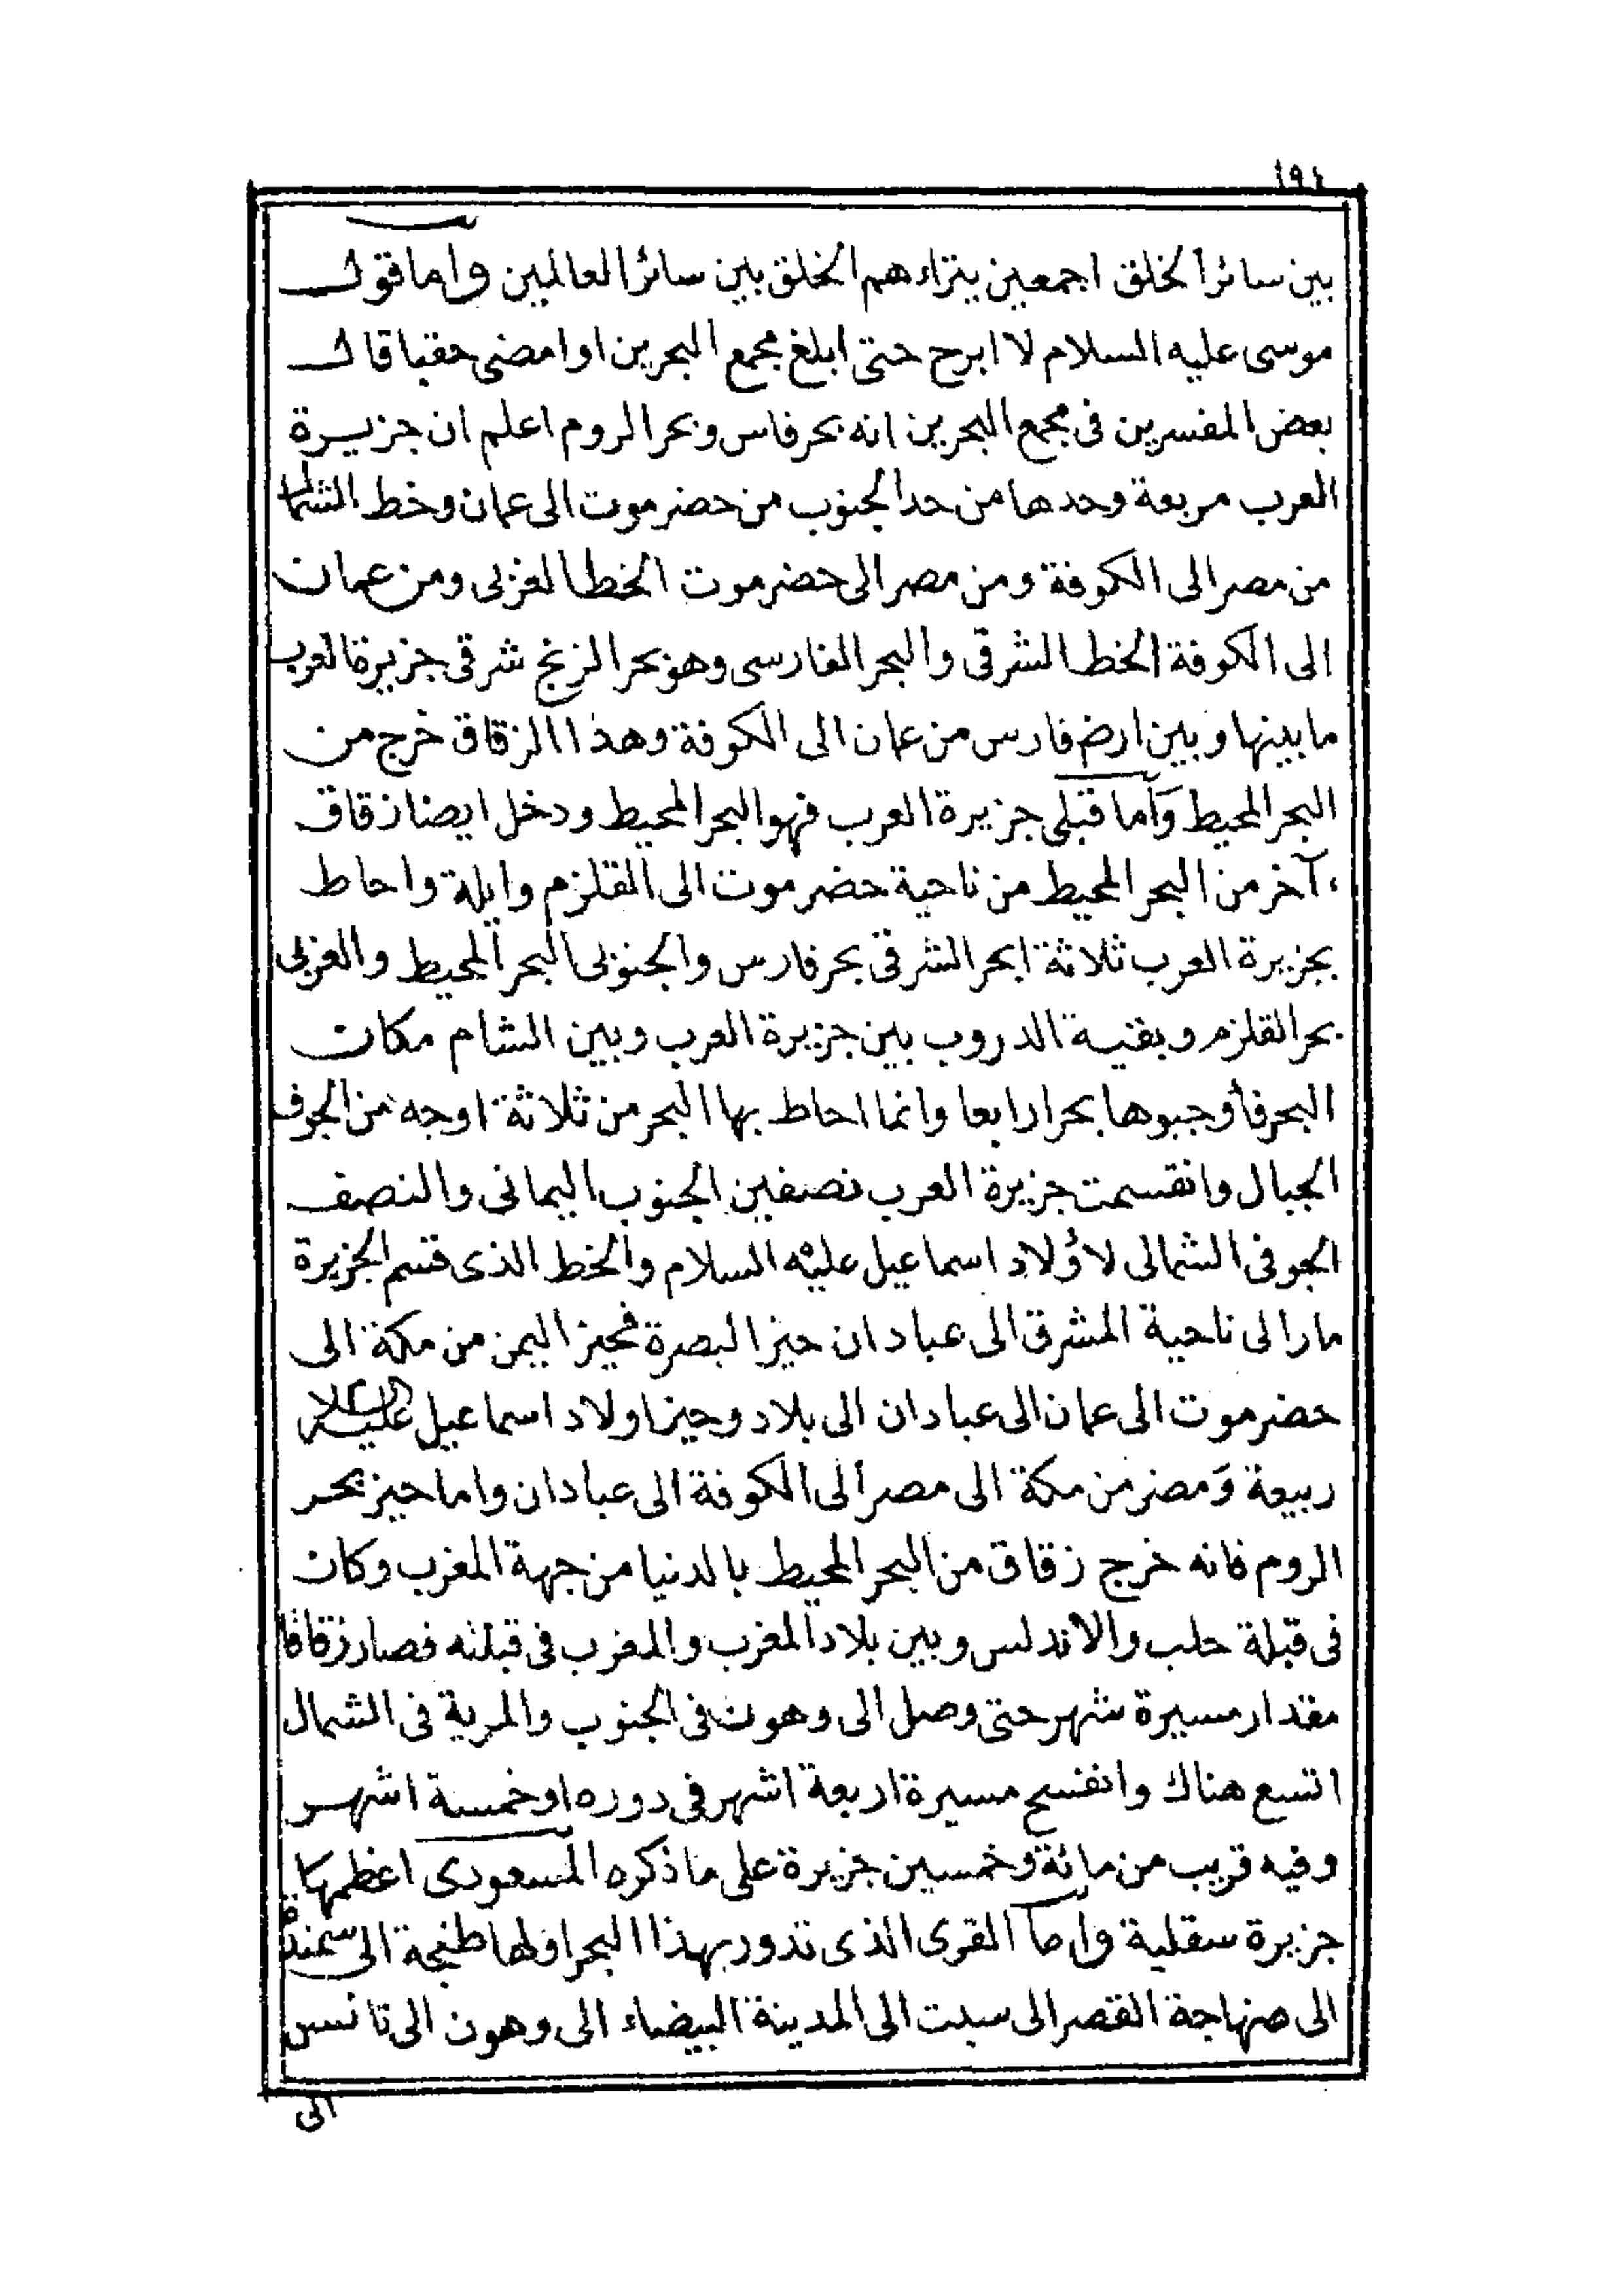 ١٩٤
بين سائر الخلق اجمعين يتراءهم الخلق بين سائر العالمين واما قول
موسى عليه السلام لا ابرح حتى ابلغ مجمع البحرين او امضى حقبا قال
بعض المفسرين فى مجمع البحرين انه بحر فاس وبحر الروم اعلم ان جزيرة
العرب مربعة وحدها من حد الجنوب من حضرموت الى عمان وخط الشمال
من مصر الى الكوفة ومن مصر الى حضرموت الخط الغربى ومن عمان
الى الكوفة الخط الشرقى والبحر الفارسى وهو بحر الزنج شرقى جزيرة العرب
ما بينها وبين ارض فارس من عمان الى الكوفة وهذا الزقاق خرج من
البحر المحيط وأما قبلى جزيرة العرب فهو البحر المحيط ودخل ايضا زقاق
آخر من البحر المحيط من ناحية حضرموت الى القلزم وايلة واحاط
بجزيرة العرب ثلاثة ابحر الشرقى بحر فارس والجنوبى البحر المحيط والغربى
بحر القلزم وبقية الدروب بين جزيرة العرب وبين الشام مكان
البحر فأوجبوها بحرا رابعا وانما احاط بها البحر من ثلاثة اوجه من الجوف
الجبال وانقسمت جزيرة العرب نصفين الجنوب اليمانى والنصف
الجوفى الشمالى لاؤلاد اسماعيل عليه السلام والخط الذى قسم الجزيرة
مارا لى ناحية المشرق الى عبادان حيز البصرة فحيز اليمن من مكة الى
حضرموت الى عمان الى عبادان الى بلاد وحيز اولاد اسماعيل عليه السلام
ربيعة وَمضر من مكة الى مصر الى الكوفة الى عبادان واما حيز بحر
الروم فانه خرج زقاق من البحر المحيط بالدنيا من جهة المغرب وكان
فى قبلة حلب والاندلس وبين بلاد المغرب والمغرب فى قبلته فصار زقاقا
مقدار مسيرة شهر حتى وصل الى وهون فى الجنوب والمرية فى الشمال
اتسع هناك وانفسح مسيرة اربعة اشهر فى دوره او خمسة اشهر
وفيه قريب من مائة وخمسين جزيرة على ما ذكره المسعودى اعظمها
جزيرة سقلية واما القرى الذى تدور بهذا البحر اولها طنجة الى
الى صنهاجة القصر الى سبت الى المدينة البيضاء الى وهون الى تانس
الى